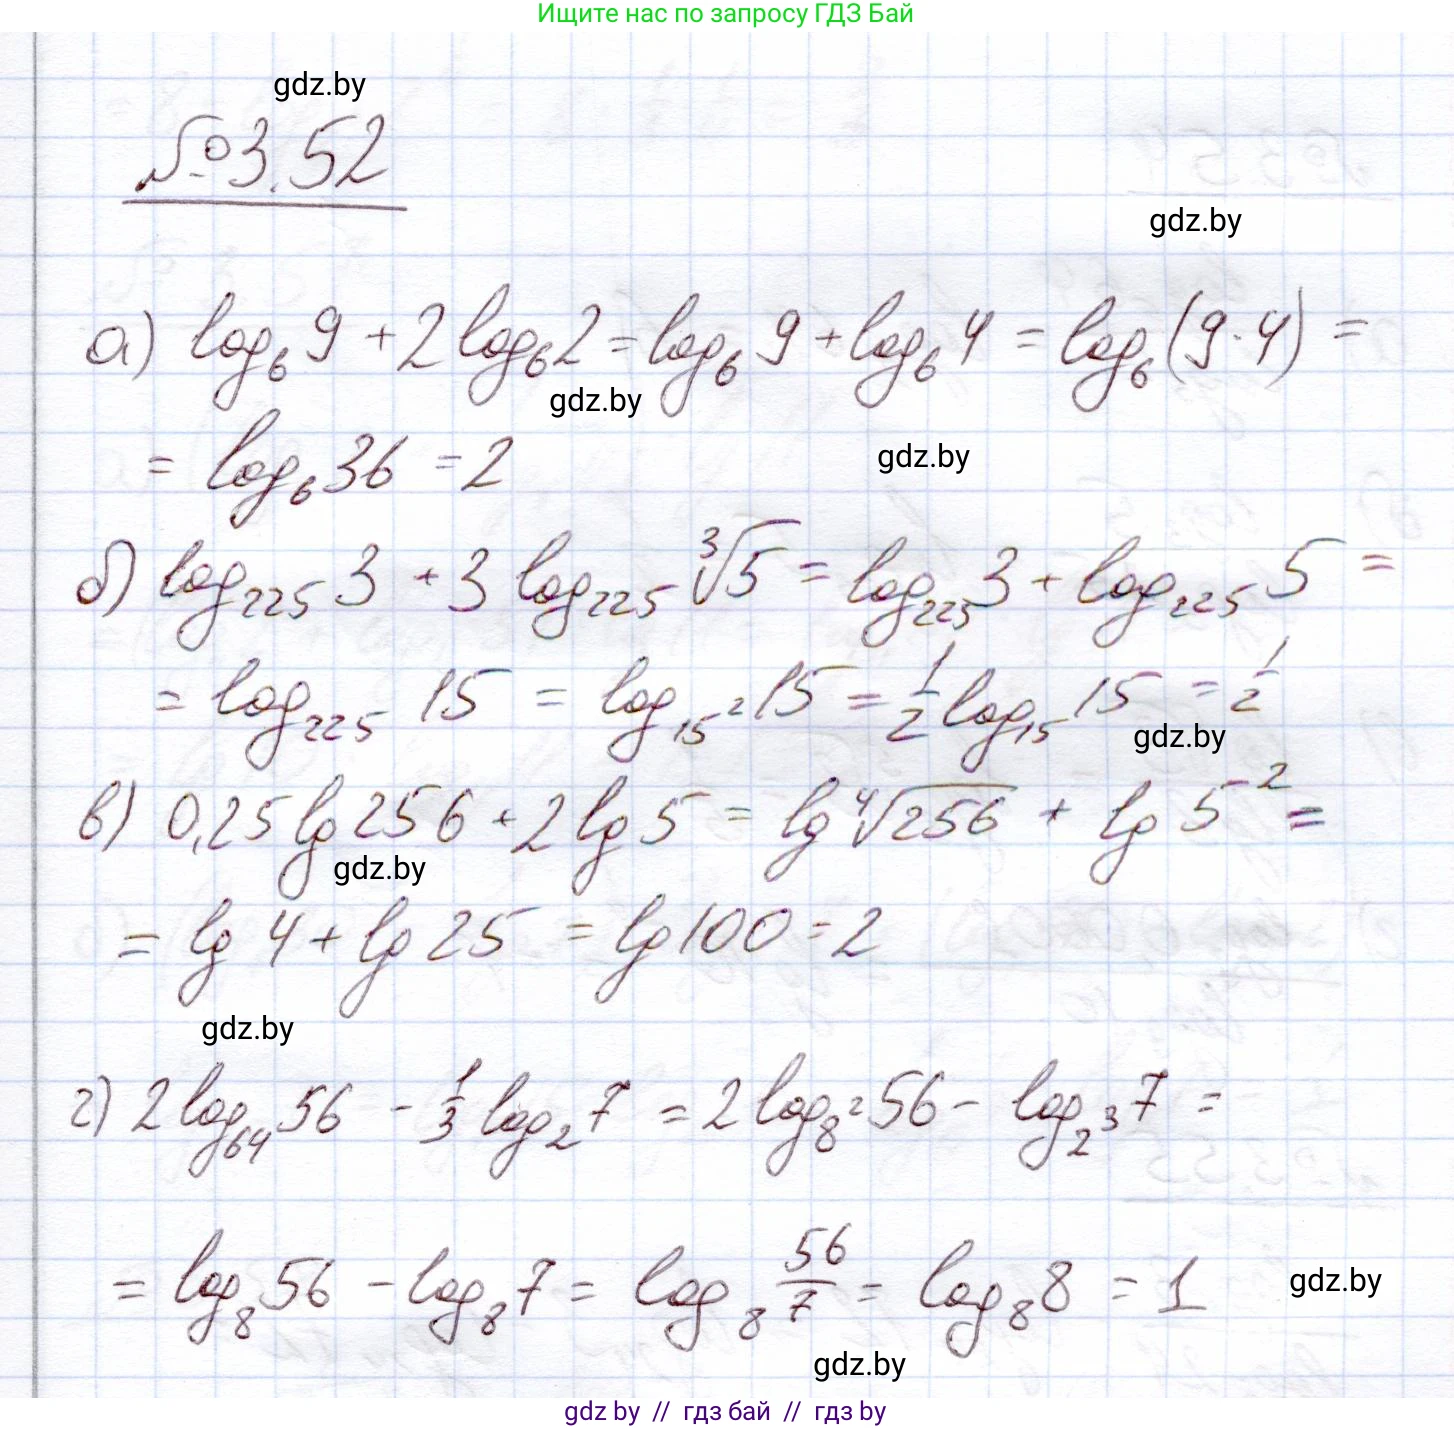 Ищите нас по запросу ГДЗ Бай
gdz.by
№3.52
gdz.by
а) log₆9 + 2log₆2 = log₆9 + log₆4 = log₆(9·4) =
gdz.by
= log₆36 = 2
gdz.by
б) log₂₂₅3 + 3 log₂₂₅ ∛5 = log₂₂₅3 + log₂₂₅5 =
= log₂₂₅ 15 = log₁₅²15 = 1/2 log₁₅15 = 1/2
gdz.by
в) 0,25 lg 256 + 2 lg 5 = lg ∜256 + lg 5² =
gdz.by
= lg 4 + lg 25 = lg 100 = 2
gdz.by
г) 2 log₆₄56 - 1/3 log₂7 = 2 log₈²56 - log₂³7 =
= log₈56 - log₈7 = log₈ 56/7 = log₈8 = 1
gdz.by
gdz.by
gdz by // гдз бай // гдз by